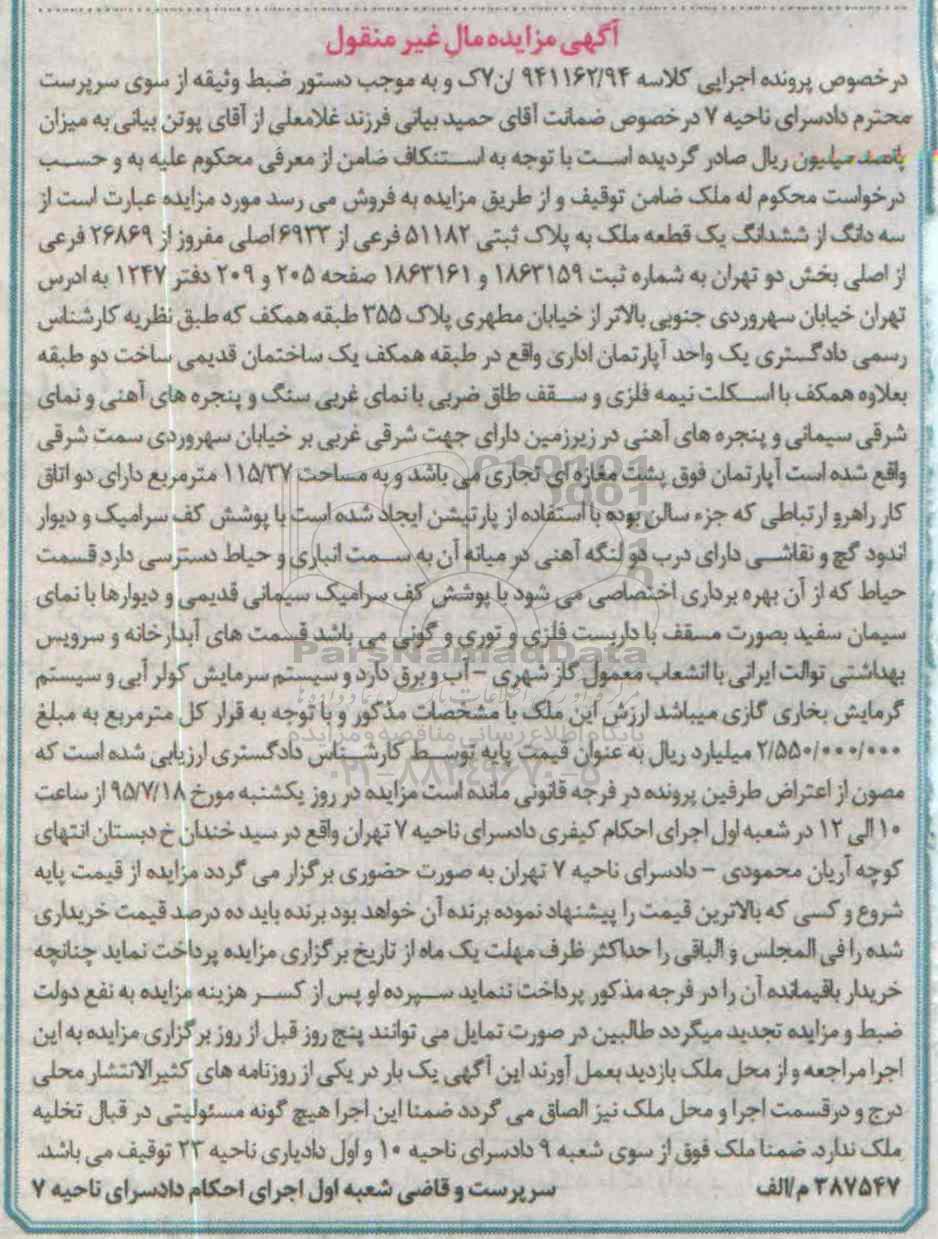 آگهی مزایده مال غیر منقول
درخصوص پرونده اجرایی کلاسه ۹۴۱۱۶۲/۹۴ /ن۷ک و به موجب دستور ضبط وثیقه از سوی سرپرست
محترم دادسرای ناحیه ۷ درخصوص ضمانت آقای حمید بیانی فرزند غلامعلی از آقای پوتن بیانی به میزان
پانصد میلیون ریال صادر گردیده است با توجه به استنکاف ضامن از معرفی محکوم علیه به و حسب
درخواست محکوم له ملک ضامن توقیف و از طریق مزایده به فروش می رسد مورد مزایده عبارت است از
سه دانگ از ششدانگ یک قطعه ملک به پلاک ثبتی ۵۱۱۸۲ فرعی از ۶۹۳۳ اصلی مفروز از ۲۶۸۶۹ فرعی
از اصلی بخش دو تهران به شماره ثبت ۱۸۶۳۱۵۹ و ۱۸۶۳۱۶۱ صفحه ۲۰۵ و ۲۰۹ دفتر ۱۲۴۷ به ادرس
تهران خیابان سهروردی جنوبی بالاتر از خیابان مطهری پلاک ۳۵۵ طبقه همکف که طبق نظریه کارشناس
رسمی دادگستری یک واحد آپارتمان اداری واقع در طبقه همکف یک ساختمان قدیمی ساخت دو طبقه
بعلاوه همکف با اسکلت نیمه فلزی و سقف طاق ضربی با نمای غربی سنگ و پنجره های آهنی و نمای
شرقی سیمانی و پنجره های آهنی در زیرزمین دارای جهت شرقی غربی بر خیابان سهروردی سمت شرقی
واقع شده است آپارتمان فوق پشت مغازه ای تجاری می باشد و به مساحت ۱۱۵/۳۷ مترمربع دارای دو اتاق
کار راهرو ارتباطی که جزء سالن بوده با استفاده از پارتیشن ایجاد شده است با پوشش کف سرامیک و دیوار
اندود گچ و نقاشی دارای درب دو لنگه آهنی در میانه آن به سمت انباری و حیاط دسترسی دارد قسمت
حیاط که از آن بهره برداری اختصاصی می شود با پوشش کف سرامیک سیمانی قدیمی و دیوارها با نمای
سیمان سفید بصورت مسقف با داربست فلزی و توری و گونی می باشد قسمت های آبدارخانه و سرویس
بهداشتی توالت ایرانی با انشعاب معمول گاز شهری – آب و برق دارد و سیستم سرمایش کولر آبی و سیستم
گرمایش بخاری گازی میباشد ارزش این ملک با مشخصات مذکور و با توجه به قرار کل مترمربع به مبلغ
۲/۵۵۰/۰۰۰/۰۰۰ میلیارد ریال به عنوان قیمت پایه توسط کارشناس دادگستری ارزیابی شده است که
مصون از اعتراض طرفین پرونده در فرجه قانونی مانده است مزایده در روز یکشنبه مورخ ۹۵/۷/۱۸ از ساعت
۱۰ الی ۱۲ در شعبه اول اجرای احکام کیفری دادسرای ناحیه ۷ تهران واقع در سید خندان خ دبستان انتهای
کوچه آریان محمودی – دادسرای ناحیه ۷ تهران به صورت حضوری برگزار می گردد مزایده از قیمت پایه
شروع و کسی که بالاترین قیمت را پیشنهاد نموده برنده آن خواهد بود برنده باید ده درصد قیمت خریداری
شده را فی المجلس و الباقی را حداکثر ظرف مهلت یک ماه از تاریخ برگزاری مزایده پرداخت نماید چنانچه
خریدار باقیمانده آن را در فرجه مذکور پرداخت ننماید سپرده او پس از کسر هزینه مزایده به نفع دولت
ضبط و مزایده تجدید میگردد طالبین در صورت تمایل می توانند پنج روز قبل از روز برگزاری مزایده به این
اجرا مراجعه و از محل ملک بازدید بعمل آورند این آگهی یک بار در یکی از روزنامه های کثیرالانتشار محلی
درج و درقسمت اجرا و محل ملک نیز الصاق می گردد ضمنا این اجرا هیچ گونه مسئولیتی در قبال تخلیه
ملک ندارد. ضمنا ملک فوق از سوی شعبه ۹ دادسرای ناحیه ۱۰ و اول دادیاری ناحیه ۲۳ توقیف می باشد.
۳۸۷۵۴۷ م/الف سرپرست و قاضی شعبه اول اجرای احکام دادسرای ناحیه ۷
ParsNamadData
پایگاه اطلاع رسانی مناقصه و مزایده
۰۲۱-۸۸۳۴۹۶۷۰-۵